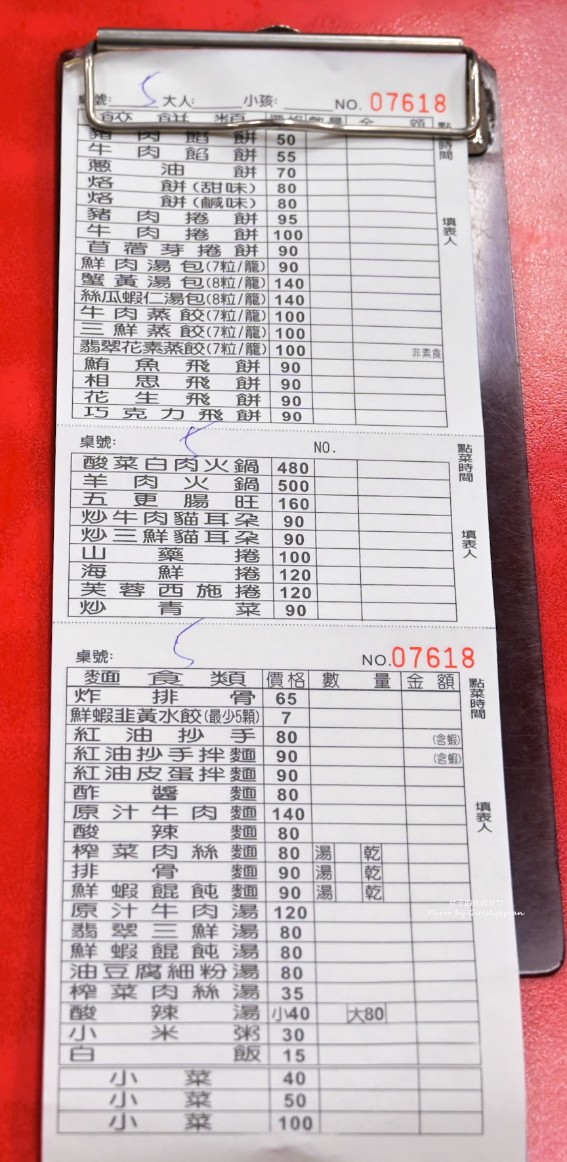 桌號: 5 大人: 小孩: NO. 07618
餃餅類 價格 數量 金額 點
時間
豬肉餡餅 50
牛肉餡餅 55
蔥油餅 70
烙餅(甜味) 80
烙餅(鹹味) 80
豬肉捲餅 95
牛肉捲餅 100
苜蓿芽捲餅 90
鮮肉湯包(7粒/籠) 90
蟹黃湯包(8粒/籠) 140
絲瓜蝦仁湯包(8粒/籠) 140
牛肉蒸餃(7粒/籠) 100
三鮮蒸餃(7粒/籠) 100
翡翠花素蒸餃(7粒/籠) 100 非素食
鮪魚飛餅 90
相思飛餅 90
花生飛餅 90
巧克力飛餅 90
填表人
桌號: 5 NO.
點菜時間
酸菜白肉火鍋 480
羊肉火鍋 500
五更腸旺 160
炒牛肉貓耳朵 90
炒三鮮貓耳朵 90
山藥捲 100
海鮮捲 120
芙蓉西施捲 120
炒青菜 90
填表人
桌號: 5 NO.07618
麵食類 價格 數量 金額 點菜時間
炸排骨 65
鮮蝦韭黃水餃(最少5顆) 7
紅油抄手 80 (含蝦)
紅油抄手拌麵 90 (含蝦)
紅油皮蛋拌麵 90
酢醬麵 80
原汁牛肉麵 140
酸辣麵 80
榨菜肉絲麵 80 湯 乾
排骨麵 90 湯 乾
鮮蝦餛飩麵 90 湯 乾
原汁牛肉湯 120
翡翠三鮮湯 80
鮮蝦餛飩湯 80
油豆腐細粉湯 80
榨菜肉絲湯 35
酸辣湯 小40 大80
小米粥 30
白飯 15
小菜 40
小菜 50
小菜 100
填表人